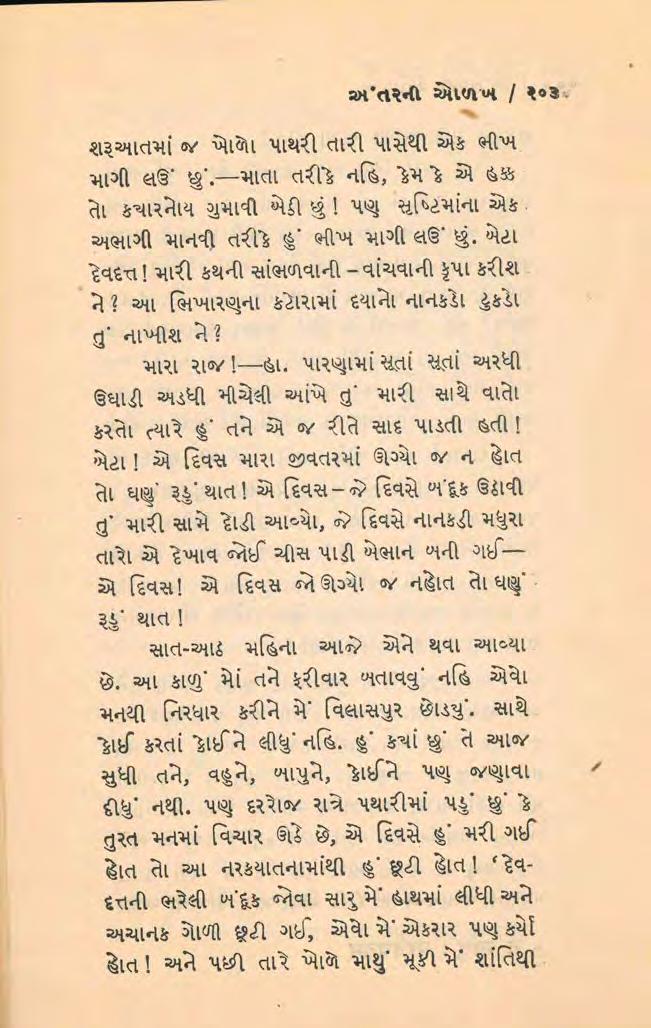 અંતરની ઓળખ / ૨૦૩
શરૂઆતમાં જ ખોળો પાથરી તારી પાસેથી એક ભીખ
માગી લઉં છું.—માતા તરીકે નહિ, કેમ કે એ હક્ક
તો કયારનોય ગુમાવી બેઠી છું! પણ સૃષ્ટિમાંના એક
અભાગી માનવી તરીકે હું ભીખ માગી લઉં છું. બેટા
દેવદત્ત! મારી કથની સાંભળવાની – વાંચવાની કૃપા કરીશ
ને? આ ભિખારણના કટોરામાં દયાનો નાનકડો ટુકડો
તું નાખીશ ને?
મારા રાજ!—હા. પારણામાં સૂતાં સૂતાં અરધી
ઉઘાડી અડધી મીચેલી આંખે તું મારી સાથે વાતો
કરતો ત્યારે હું તને એ જ રીતે સાદ પાડતી હતી!
બેટા! એ દિવસ મારા જીવતરમાં ઊગ્યો જ ન હોત
તો ઘણું રૂડું થાત! એ દિવસ – જે દિવસે બંદૂક ઉઠાવી
તું મારી સામે દોડી આવ્યો, જે દિવસે નાનકડી મધુરા
તારો એ દેખાવ જોઈ ચીસ પાડી બેભાન બની ગઈ—
એ દિવસ! એ દિવસ જો ઊગ્યો જ નહોત તો ઘણું
રૂડું થાત!
સાત-આઠ મહિના આજે એને થવા આવ્યા
છે. આ કાળું મોં તને ફરીવાર બતાવવું નહિ એવો
મનથી નિરધાર કરીને મેં વિલાસપુર છોડયું. સાથે
કોઈ કરતાં કોઈને લીધું નહિ. હું કયાં છું તે આજ
સુધી તને, વહુને, બાપુને, કોઈને પણ જણાવા
દીધું નથી. પણ દરરોજ રાત્રે પથારીમાં પડું છું કે
તુરત મનમાં વિચાર ઊઠે છે, એ દિવસે હું મરી ગઈ
હોત તો આ નરકયાતનામાંથી હું છૂટી હોત! ‘દેવ-
દત્તની ભરેલી બંદૂક જોવા સારુ મેં હાથમાં લીધી અને
અચાનક ગોળી છૂટી ગઈ, એવો મેં એકરાર પણ કર્યો
હોત! અને પછી તારે ખોળે માથું મૂકી મેં શાંતિથી